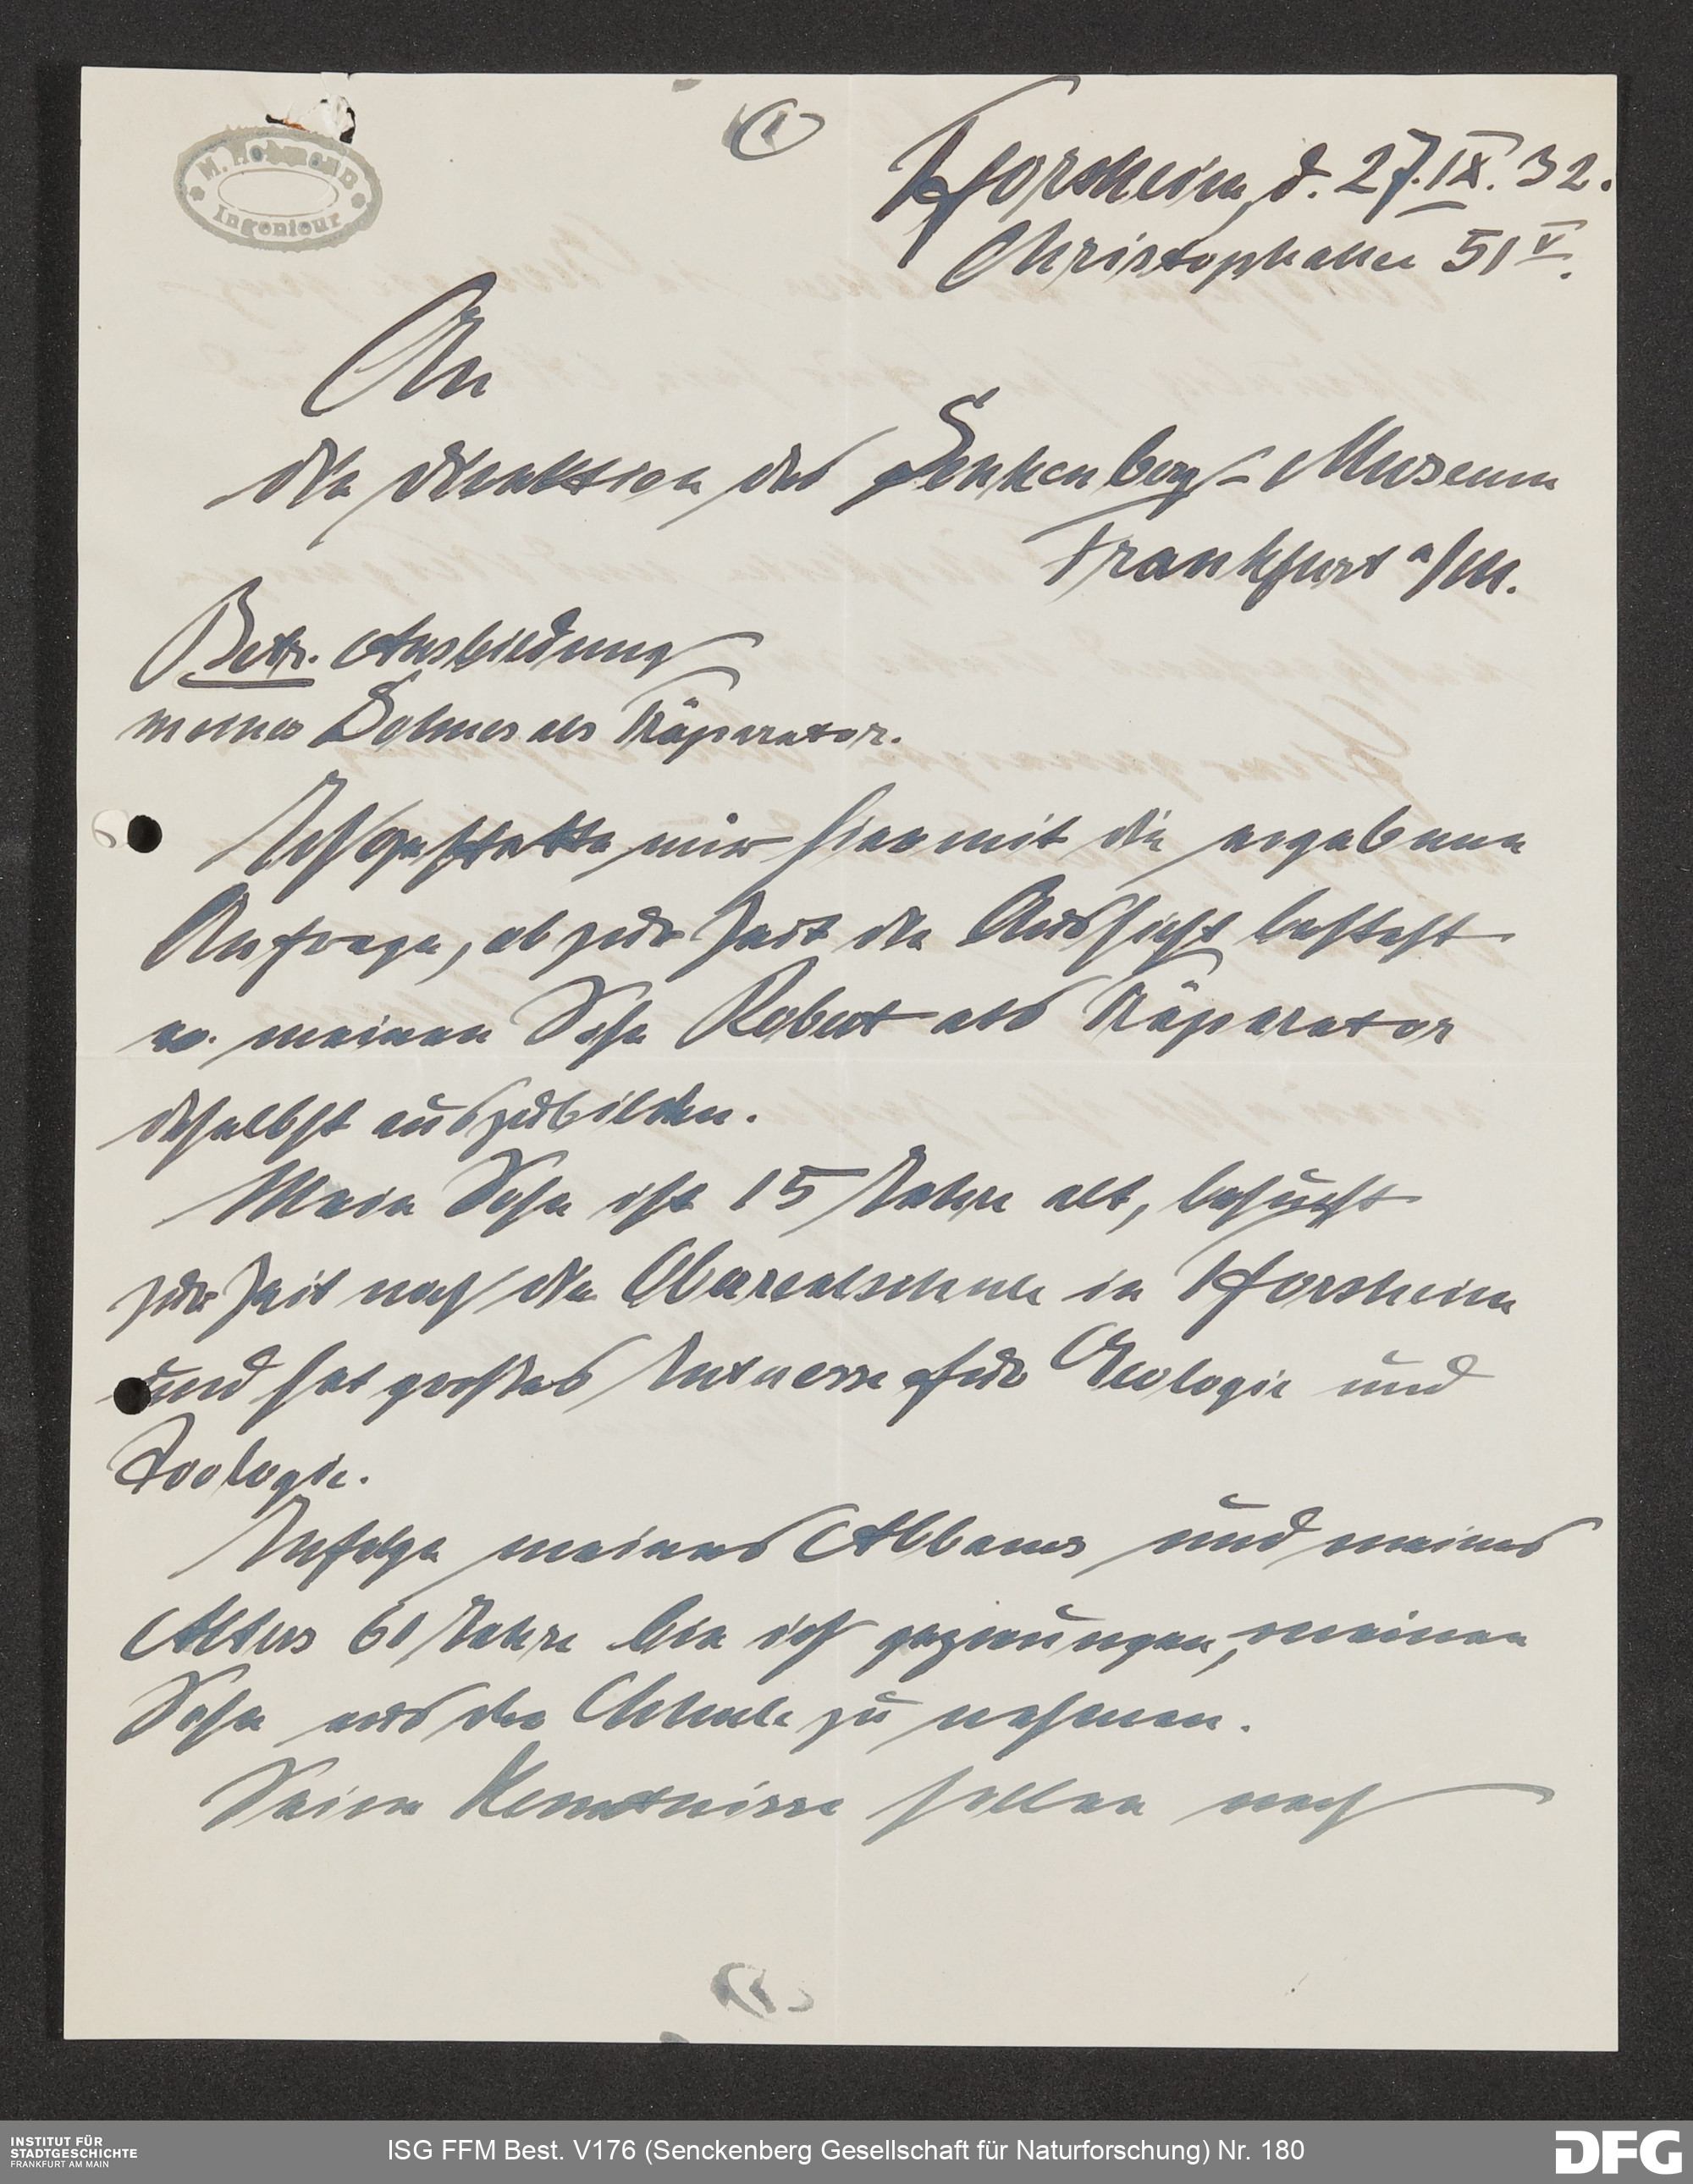 ①
Pforzheim, d. 27.IX.32.
Christophallee 51 V.
Ingenieur
An
die Direktion des Senkenberg-Museum
Frankfurt a/M.
Betr. Ausbildung
meines Sohnes als Präparator.
Ich gestatte mir hiermit die ergebene
Anfrage, ob zur Zeit die Aussicht besteht
meinen Sohn Robert als Präparator
daselbst auszubilden.
Mein Sohn ist 15 Jahre alt, besucht
zur Zeit noch die Oberrealschule in Pforzheim
und hat großes Interesse für Geologie und
Zoologie.
Infolge meines Abbaues und meines
Alters 61 Jahre bin ich gezwungen, meinen
Sohn aus der Schule zu nehmen.
Seine Kenntnisse sollen noch
INSTITUT FÜR
STADTGESCHICHTE
FRANKFURT AM MAIN
ISG FFM Best. V176 (Senckenberg Gesellschaft für Naturforschung) Nr. 180
DFG